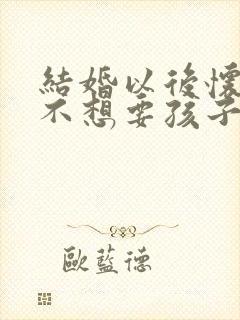 結婚以後懷
不想要孩子
歐藍德